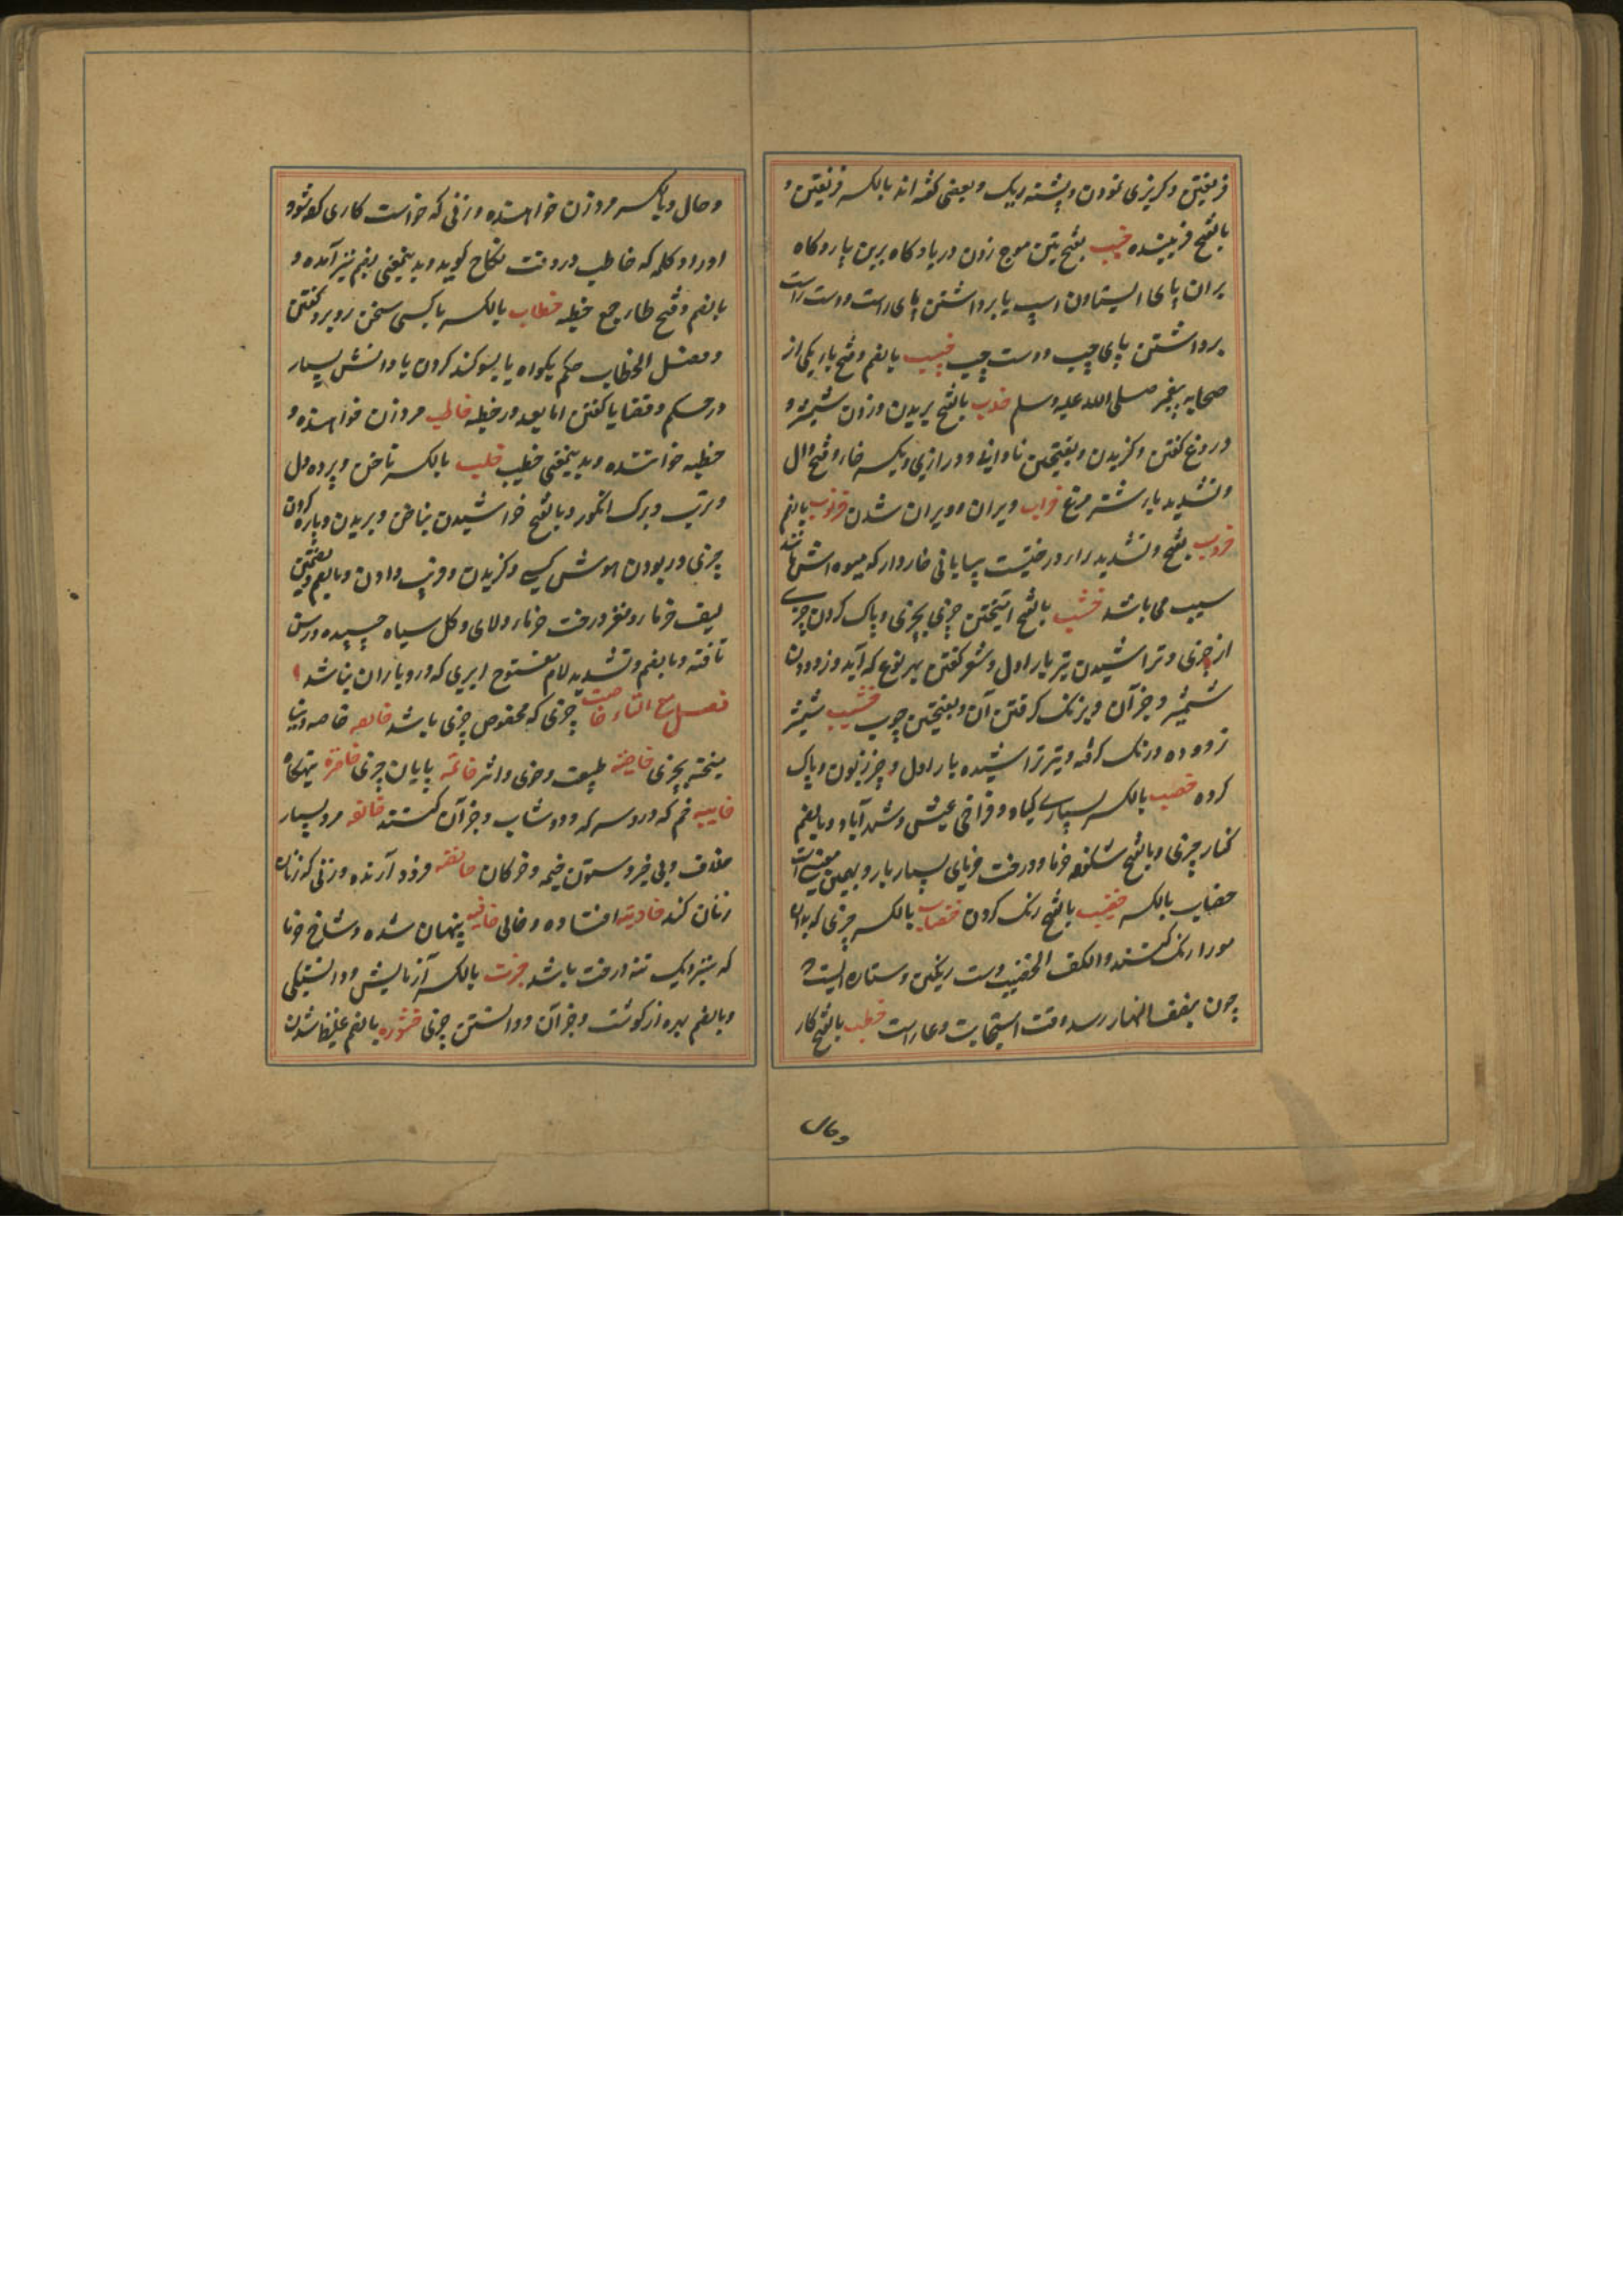 فریفتن و گریزی نمودن و پشته ریک و بعضی گفته اند بالکسر فریفتن و
بالفتح فریبنده خبب بفتحتین موج زدن دریا و کاه برین پا و کاه
بران پای ایستادن اسپ یا برداشتن پای راست و دست راست
برداشتن پای چپ و دست چپ خبیب بالضم و فتح با یکی از
صحابه پیغمبر صلی الله علیه وسلم خدب بالفتح بریدن و زدن شمشیر و
دروغ گفتن و گزیدن و بفتحتین نادانی و درازی و بکسر خا و فتح دال
و تشدید با شتر مرغ خراب ویران و ویران شدن خرنوب بالضم
خروب بفتح و تشدید را درختیست بیابانی خاردار که میوه اش مانند
سیب می باشد خشب بالفتح آمیختن چیزی بچیزی و پاک کردن چیزے
از چیزی و تراشیدن تیر بار اول و شعر گفتن بهر نوع که آید و زدودن
شمشیر و جز آن و بزنک گرفتن آن و بفتحتین چوب خشیب شمشیر
زدوده و زنک گرفته و تیر تراشیده بار اول و چیز زبون و پاک
کرده خصب بالکسر بسیارے گیاه و فراخی عیش و شهر آباد و بالضم
کنار چیزی و بالفتح شکوفه خرما و درخت خرمای بسیار بار و بهمین معنیست
خصاب بالکسر خضب بالفتح رنک کردن خضاب بالکسر چیزی که بدان
مو را رنک کنند و الکف الخضیب دست رنگین و ستاره ایست که
چون بنصف النهار رسد وقت استجابت دعا است خطب بالفتح کار
وحال
و حال و بالکسر مرد زن خواهنده و زنی که خواست کاری کرده شود
او را و کلمه که خاطب در وقت نکاح گوید و بدینمعنی بضم نیز آمده و
بالضم و فتح طا جمع خطبه خطاب بالکسر با کسی سخن روبرو گفتن
و فصل الخطاب حکم بگواه یا بسوگند کردن یا دانش بسیار
در حکم و قضا یا گفتن اما بعد در خطبه خاطب مرد زن خواهنده و
خطبه خواننده و بدینمعنی خطیب خلب بالکسر ناخن و پرده دل
و ترب و برک انگور و بالفتح خراشیدن بناخن و بریدن و پاره کردن
چیزی و ربودن هوش کسی و گزیدن و فریب دادن و بالضم و بضمتین
لیف خرما و مغز درخت خرما و لای و گل سیاه چسپیده و رسن
تافته و بالضم و تشدید لام مفتوح ابری که درو باران نباشد
فصل مع التاء خاصت چیزی که مخصوص چیزی باشد خالصه خاصه و نیا
میخته بچیزی خاصیة طبیعت و خوی و اثر خاتمه پایان چیزی خاصره تهیگاه
خابیه خم که درو سرکه و دوشاب و جز آن کنند خالفه مرد بسیار
خلاف و بی خیر و ستون خیمه و خرکان خافضه فرود آرنده و زنی که زنان
زنان کند خاویه افتاده و خالی خافیه پنهان شده و شاخ خرما
که بنزدیک تنه درخت باشد خبرت بالکسر آزمایش و دانستکی
و بالضم بهره از گوشت و جز آن و دانستن چیزی خثوره بالضم غلیظ شدن